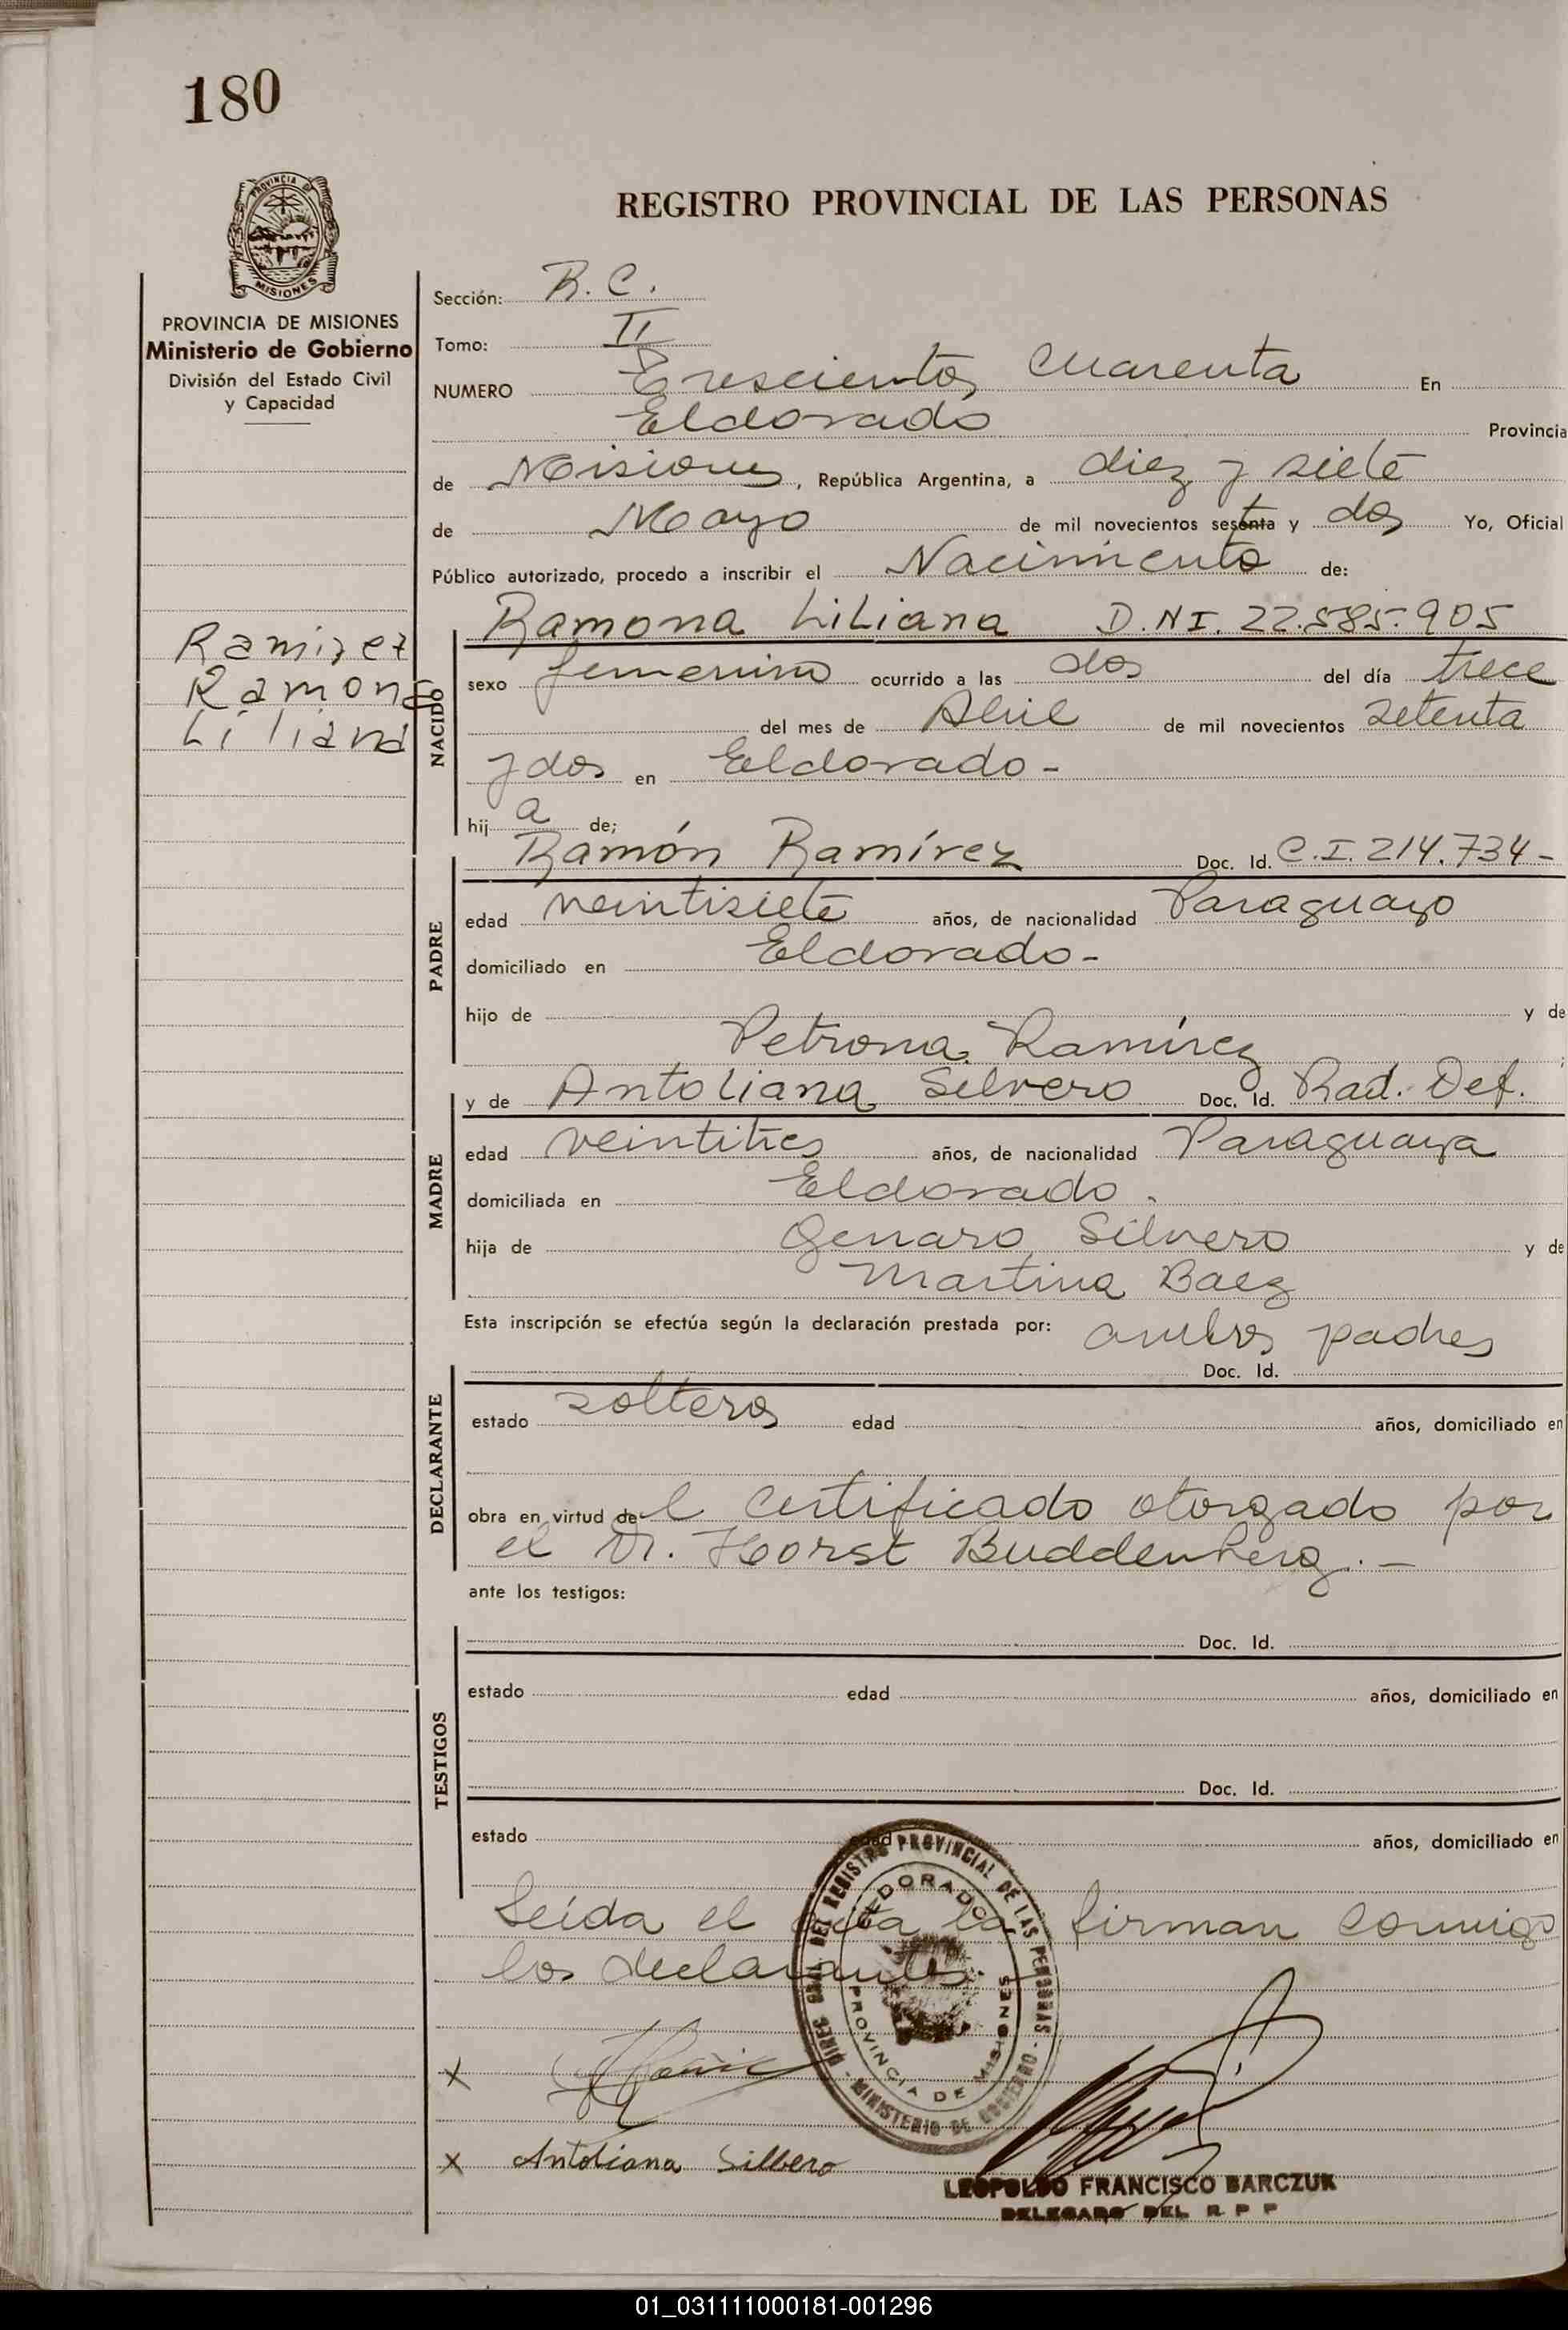 180
PROVINCIA DE
MISIONES
REGISTRO PROVINCIAL DE LAS PERSONAS
PROVINCIA DE MISIONES
Ministerio de Gobierno
División del Estado Civil
y Capacidad
Ramirez
Ramona
Liliana
Sección: R. C.
Tomo: II
NUMERO Trescientos cuarenta En
Eldorado Provincia
de Misiones, República Argentina, a diez y siete
de Mayo de mil novecientos setenta y dos Yo, Oficial
Público autorizado, procedo a inscribir el Nacimiento de:
NACIDO
Ramona Liliana D.N.I. 22.585.905
sexo femenino ocurrido a las dos del día trece
del mes de Abril de mil novecientos setenta
y dos en Eldorado -
hij a de;
PADRE
Ramón Ramírez Doc. Id. C.I. 214.734 -
edad veintisiete años, de nacionalidad Paraguayo
domiciliado en Eldorado -
hijo de y de
Petrona Ramírez
MADRE
y de Antoliana Silvero Doc. Id. Rad. Def.
edad veintitres años, de nacionalidad Paraguaya
domiciliada en Eldorado.
hija de Genaro Silvero y de
Martina Baez
Esta inscripción se efectúa según la declaración prestada por: ambos padres
DECLARANTE
Doc. Id.
estado solteros edad años, domiciliado en
obra en virtud del certificado otorgado por
el Dr. Horst Buddenberg. -
ante los testigos:
TESTIGOS
Doc. Id.
estado edad años, domiciliado en
Doc. Id.
estado edad años, domiciliado en
Leída el acta la firman conmigo
los declarantes.
DIREC. GRAL. DEL REGISTRO PROVINCIAL DE LAS PERSONAS - MINISTERIO DE GOBIERNO -
ELDORADO
PROVINCIA DE MISIONES
X
X Antoliana Silbero
LEOPOLDO FRANCISCO BARCZUK
DELEGADO DEL R P P
01_031111000181-001296